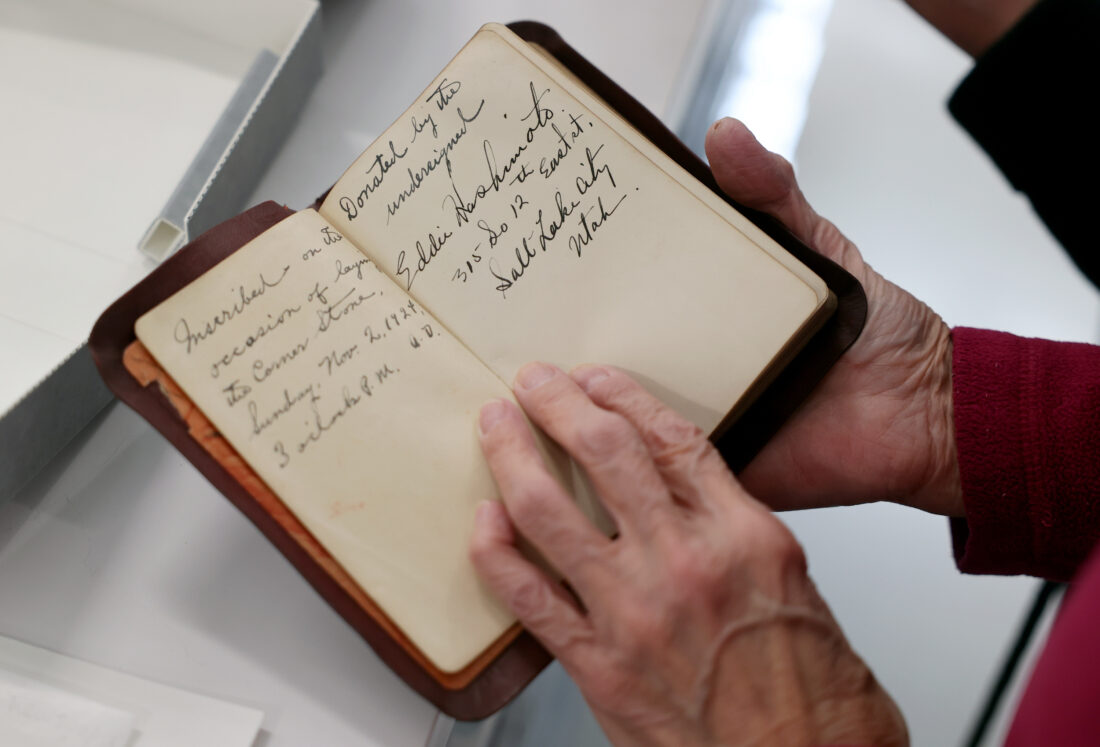 Inscribed on the
occasion of laying
the Corner Stone,
Sunday, Nov. 2, 1924.
A.D.
3 o'clock P.M.
Donated by the
undersigned
Eddie Hashimoto
315 So 12th East st.
Salt Lake City
Utah.